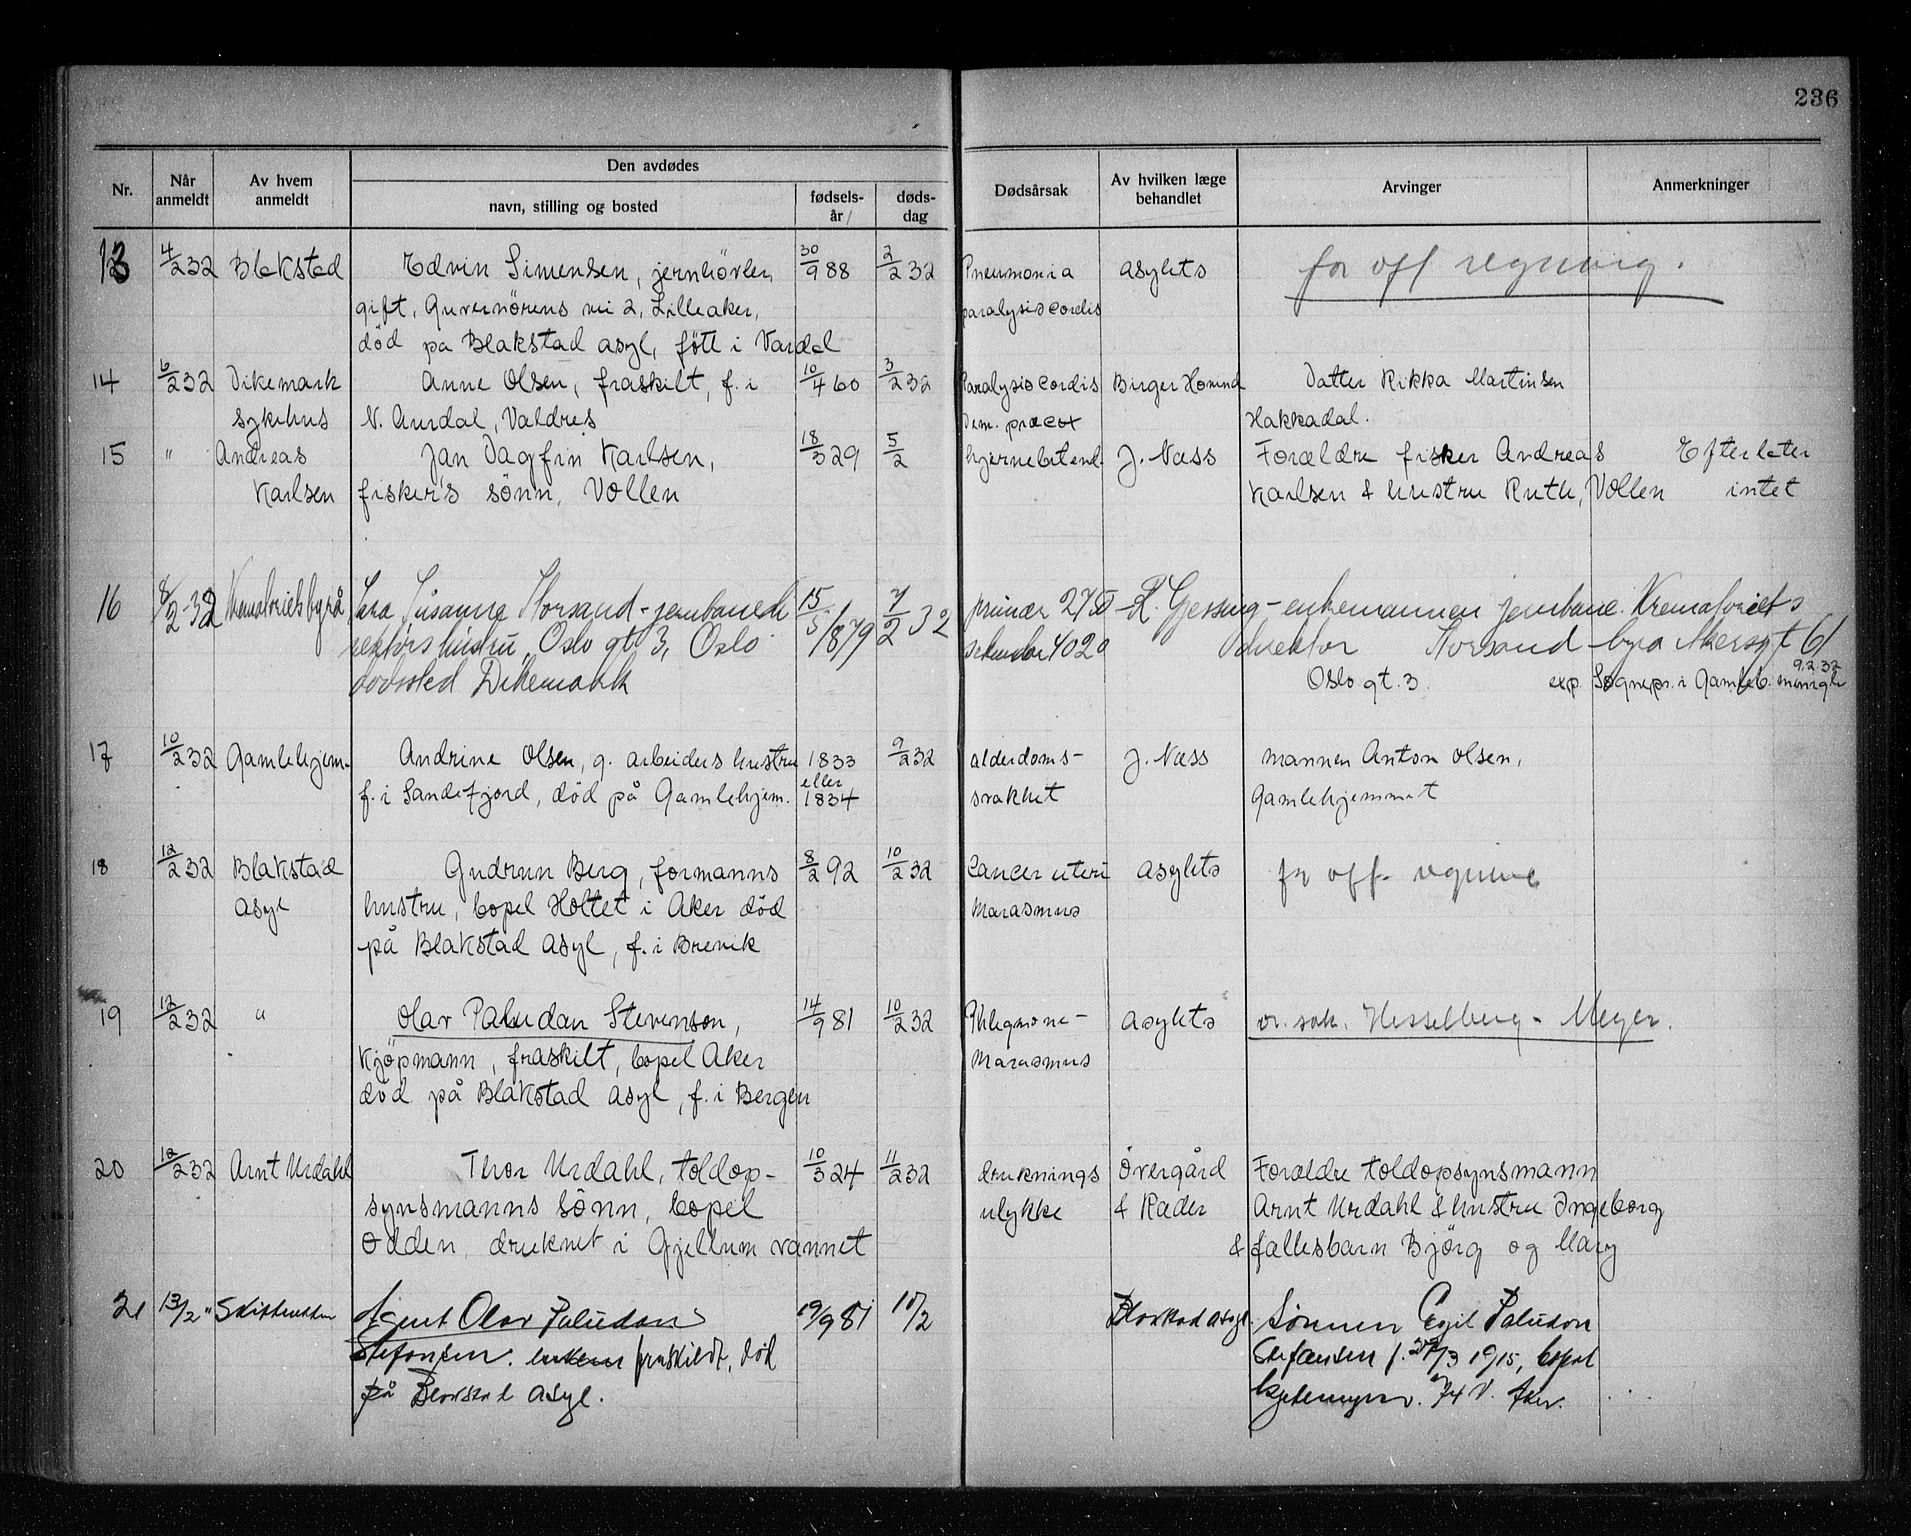 236
Den avdødes
Nr. Når anmeldt Av hvem anmeldt navn, stilling og bosted fødselsår dødsdag Dødsårsak Av hvilken læge behandlet Arvinger Anmerkninger
13 4/2 32 Blakstad Edvin Simensen, jernhövler, 30/9 88 2/2 32 Pneumonia asylets for off regning.
gift, Guvernörens vei 2, Lilleaker, paralysis cordis
död på Blakstad asyl, født i Vardal
14 6/2 32 Dikemark Anne Olsen, fraskilt, f. i 10/4 60 3/2 32 Paralysis cordis Birger Datter Rikka Martinsen
sykehus N. Aurdal, Valdres Dem. præcox Hakkadal.
15 " Andreas Jan Dagfin Karlsen, 18/3 29 5/2 hjernebetend. J. Næss Forældre fisker Andreas Efterlater
Karlsen fisker's sönn, Vollen Karlsen & hustru Ruth, Vollen intet
16 8/2-32 Krematoriets byrå Susanna Storsand - jernbanedi 15/5 1879 7/2 32 primær 27 R. Gjessing - enkemannen jernbane. Krematoriets
rektørs hustru, Oslo gt 3, Oslo sekundær 402 a direktør Storsand byrå Akersgt 61
dödssted Dikemark Oslo gt. 3. exp. Sognepr. i Gamleb. menigh 9.2.32
17 10/2 32 Gamlehjem. Andrine Olsen, g. arbeiders hustru 1833 9/2 32 alderdoms- J. Næss mannen Anton Olsen,
f. i Sandefjord, död på Gamlehjem. eller 1834 svakhet Gamlehjemmet
18 12/2 32 Blakstad Gudrun Berg, formanns 8/2 92 10/2 32 Cancer uteri asylets for off. regning
asyl hustru, bopel Holtet i Aker död Marasmus
på Blakstad asyl, f. i Brevik
19 12/2 32 " Olav Paludan Stevenson, 14/9 81 10/2 32 Phlegmone- asylets or. sak. Hesselberg - Meyer.
Kjöpmann, fraskilt, bopel Aker Marasmus
död på Blakstad asyl, f. i Bergen
20 12/2 32 Arnt Urdahl Thor Urdahl, toldop- 10/3 24 11/2 32 druknings Övergård Forældre toldopsynsmann
synsmanns sönn, bopel ulykke & Rader Arnt Urdahl & hustru Ingeborg
Odden, druknet i Gjellum vannet & fællesbarn Björg og Mary
21 13/2 " Skifteretten Agent Olav Paludan 19/9 81 10/2 Blakstad asyl. Sönnen Egil Paludan
Stefansen. fraskildt, död Stefansen f. 1915, bopel
på asyl. 74 V. Aker.